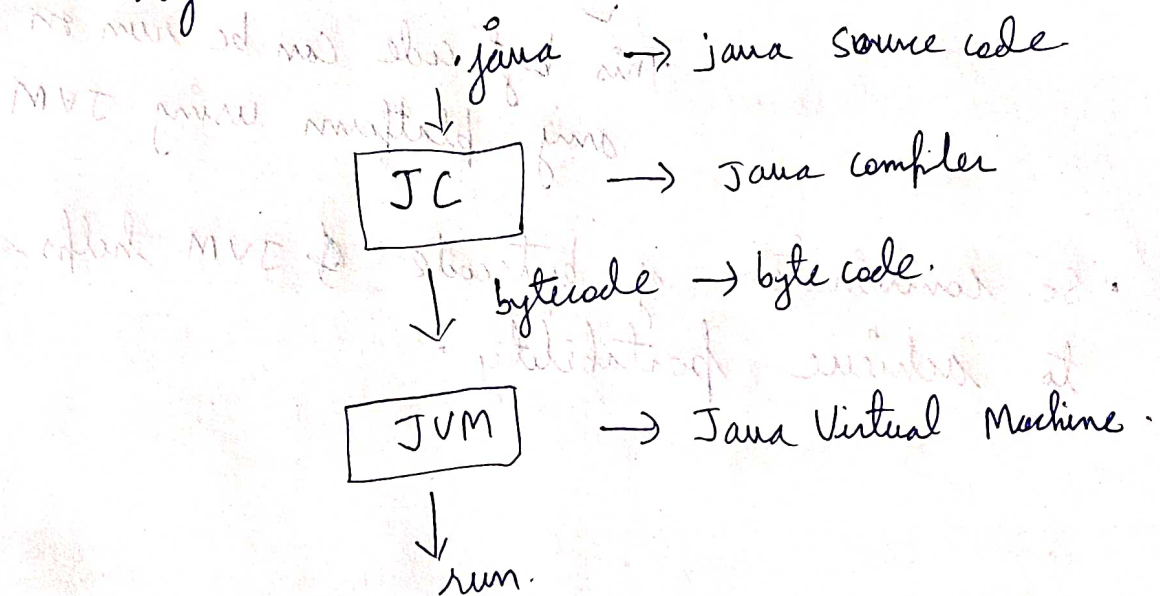 .java → java source code
JC → Java compiler
bytecode → byte code.
JVM → Java Virtual Machine.
run.